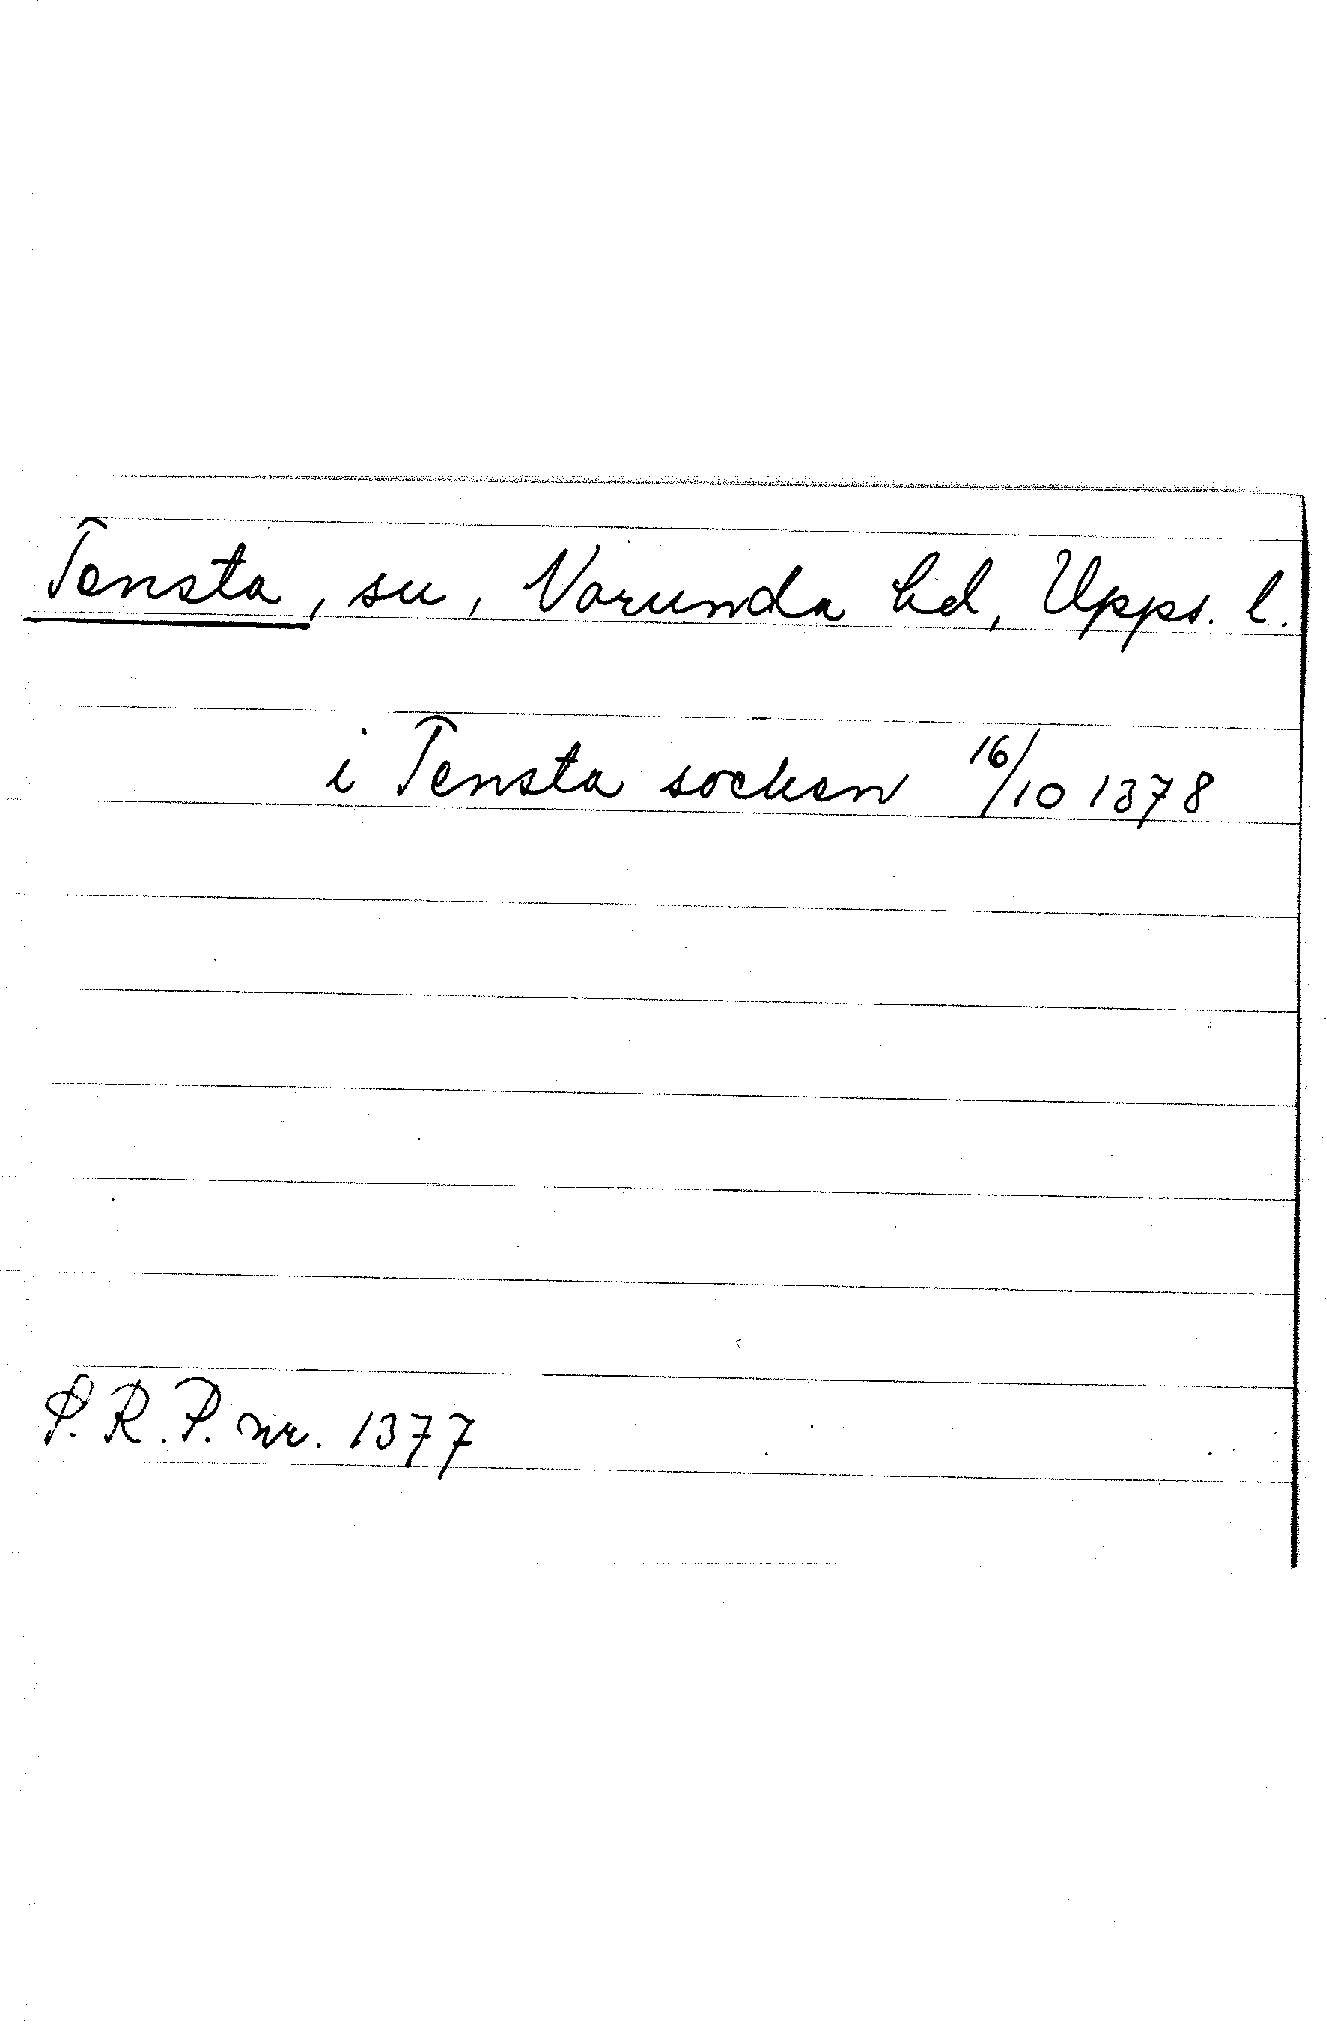 Tensta, sn, Norunda hd, Upps. l.
i Tensta socken 16/10 1378
P.R.P. nr. 1377